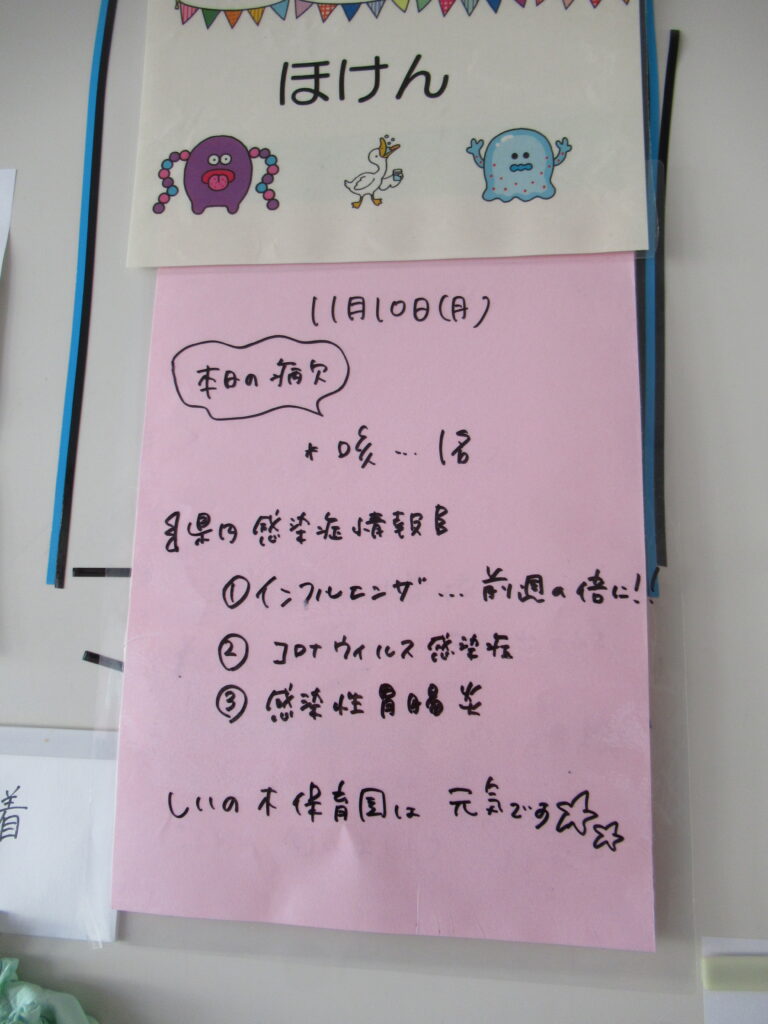 ほけん
11月10日(月)
本日の病欠
* 咳…1名
県内感染症情報
①インフルエンザ…前週の倍に!!
② コロナウィルス感染症
③ 感染性胃腸炎
しいの木保育園は 元気です☆☆
着